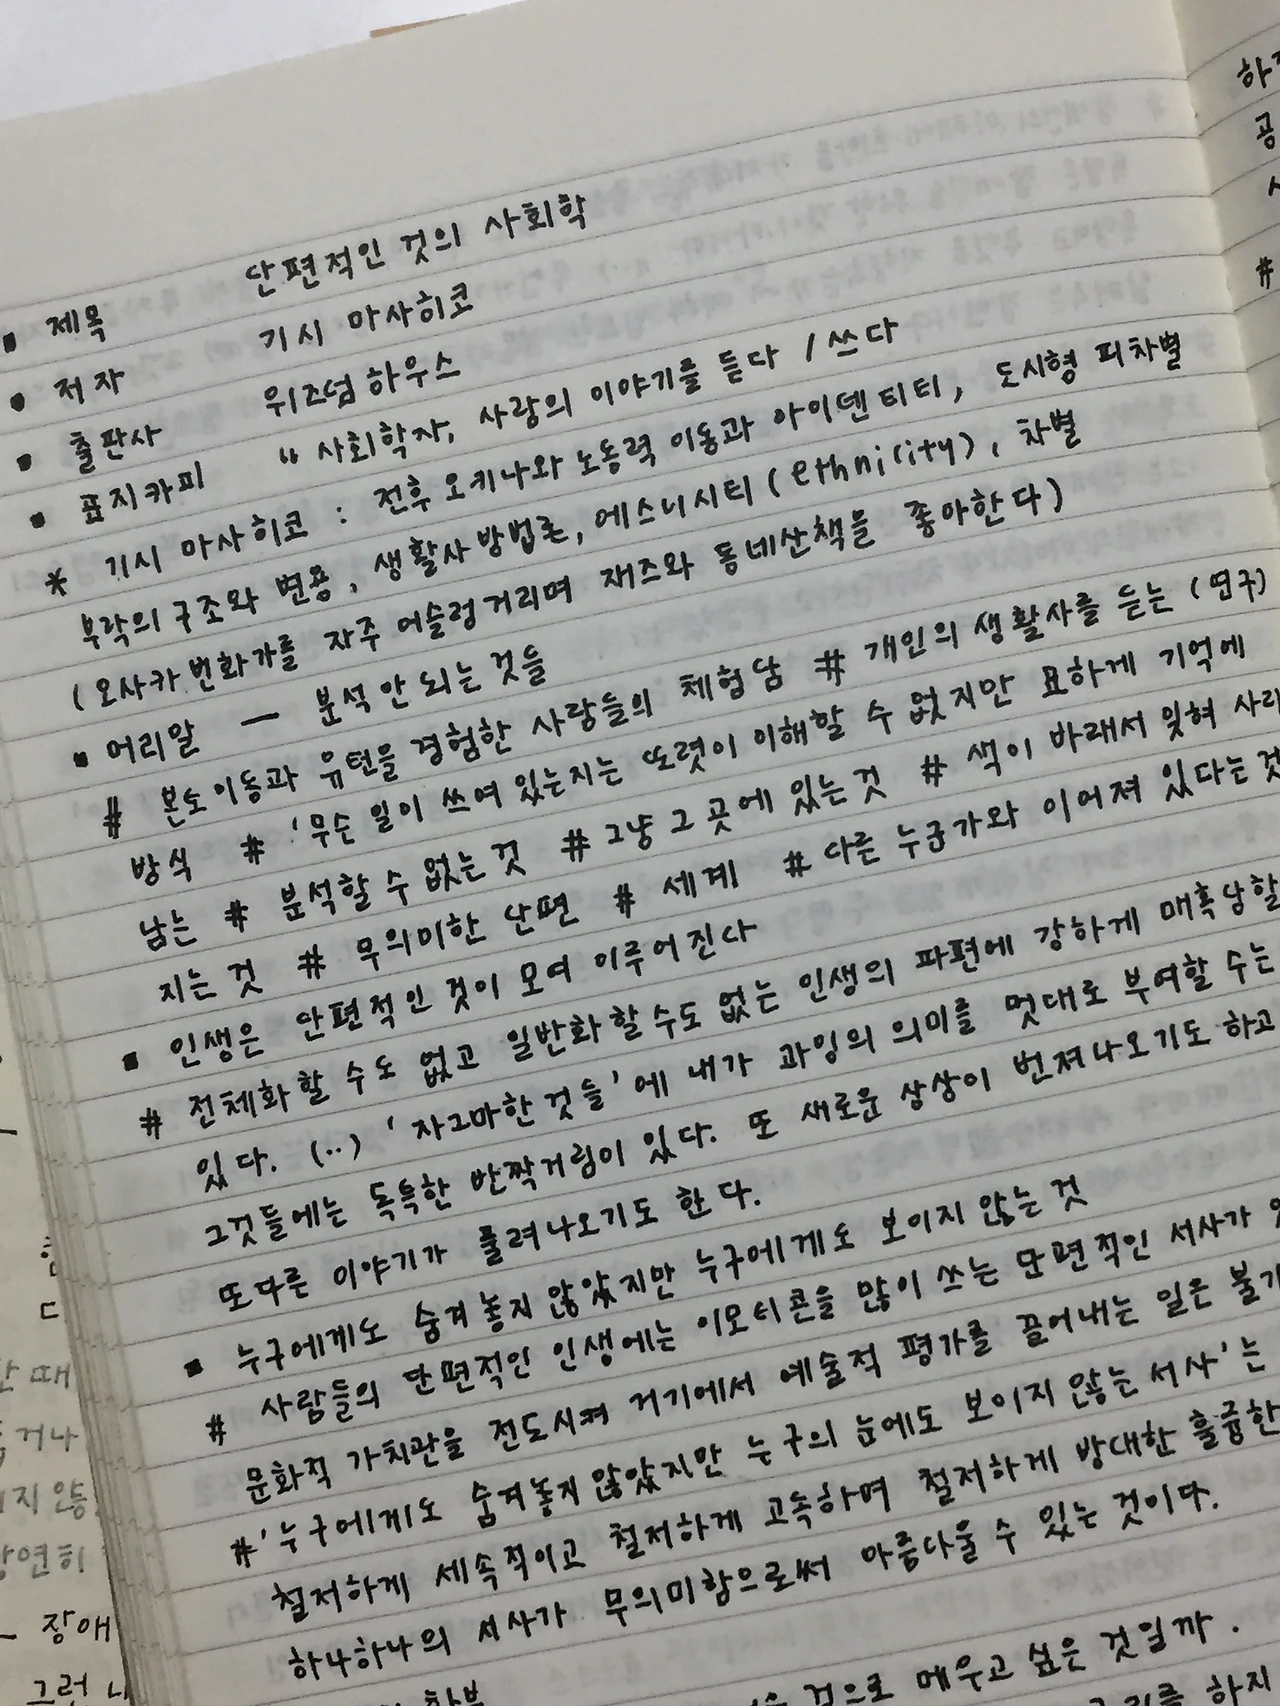 ▪ 제목 단편적인 것의 사회학
▪ 저자 기시 마사히코
▪ 출판사 위즈덤하우스
▪ 표지카피 “사회학자, 사람의 이야기를 듣다 / 쓰다
* 기시 마사히코 : 전후 오키나와 노동력 이동과 아이덴티티, 도시형 피차별
부락의 구조와 변용, 생활사 방법론, 에스니시티(ethnicity), 차별
(오사카 번화가를 자주 어슬렁거리며 재즈와 동네산책을 좋아한다)
▪ 머리말 — 분석 안 되는 것들
# 본토 이동과 유턴을 경험한 사람들의 체험담 # 개인의 생활사를 듣는 (연구)
방식 # '무슨 일이 쓰여 있는지는 또렷이 이해할 수 없지만 묘하게 기억에
남는 # 분석할 수 없는 것 # 그냥 그 곳에 있는 것 # 색이 바래서 잊혀 사라
지는 것 # 무의미한 단편 # 세계 # 다른 누군가와 이어져 있다는 것
▪ 인생은 단편적인 것이 모여 이루어진다
# 전체화할 수도 없고 일반화할 수도 없는 인생의 파편에 강하게 매혹당할
있다. (..) '자그마한 것들'에 내가 과잉의 의미를 멋대로 부여할 수는
그것들에는 독특한 반짝거림이 있다. 또 새로운 상상이 번져나오기도 하고
또다른 이야기가 흘려나오기도 한다.
▪ 누구에게도 숨겨놓지 않았지만 누구에게도 보이지 않는 것
# 사람들의 단편적인 인생에는 이모티콘을 많이 쓰는 단편적인 서사가
문화적 가치관을 전도시켜 거기에서 예술적 평가를 끌어내는 일은 불가
#'누구에게도 숨겨놓지 않았지만 누구의 눈에도 보이지 않는 서사'는
철저하게 세속적이고 철저하게 고독하며 철저하게 방대한 훌륭한
하나하나의 서사가 무의미함으로써 아름다울 수 있는 것이다.
것으로 메우고 싶은 것일까.
하지
공
#
때
거나
지 않
당연히
장애
그런